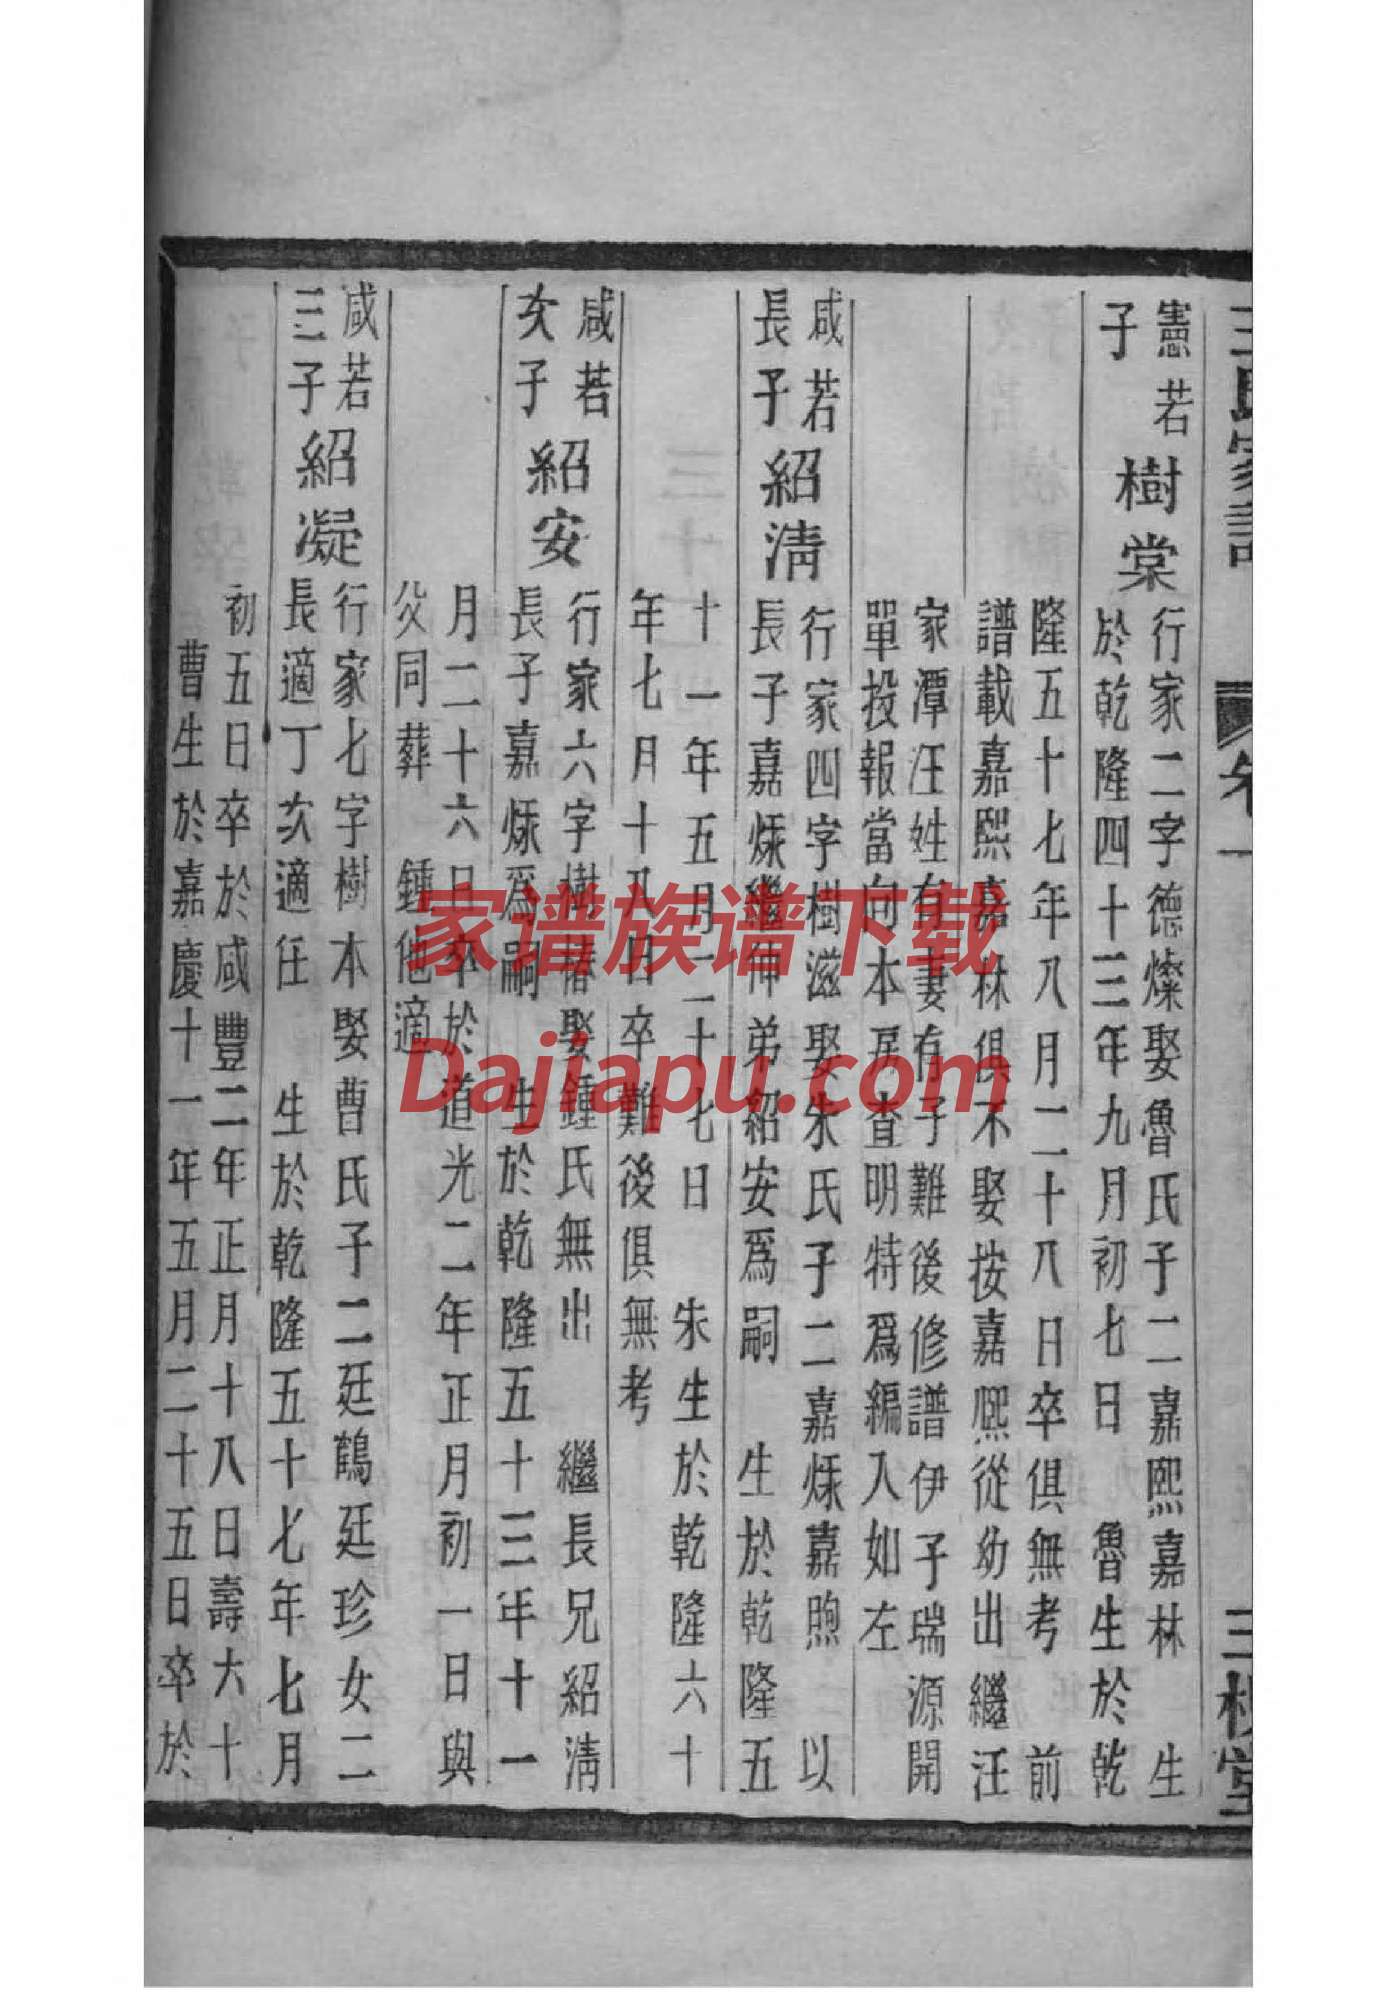 王氏家譜 卷一 三槐堂
憲若
子
樹棠
行家二字德燦娶魯氏子二嘉熙嘉林 生
於乾隆四十三年九月初七日 魯生於乾
隆五十七年八月二十八日卒俱無考 前
譜載嘉熙嘉林俱不娶按嘉熙從幼出繼汪
家潭汪姓有妻有子難後修譜伊子瑞源開
單投報當向本房查明特爲編入如左
咸若
長子
紹淸
行家四字樹滋娶朱氏子二嘉烌嘉煦 以
長子嘉烌繼仲弟紹安爲嗣 生於乾隆五
十一年五月二十七日 朱生於乾隆六十
年七月十八日卒難後俱無考
咸若
次子
紹安
行家六字樹 娶鍾氏無出 繼長兄紹淸
長子嘉烌爲嗣 生於乾隆五十三年十一
月二十六日卒於道光二年正月初一日與
父同葬 鍾他適
咸若
三子
紹凝
行家七字樹本娶曹氏子二廷鶴廷珍女二
長適丁次適任 生於乾隆五十七年七月
初五日卒於咸豐二年正月十八日壽六十
曹生於嘉慶十一年五月二十五日卒於
家谱族谱下载
Dajiapu.com